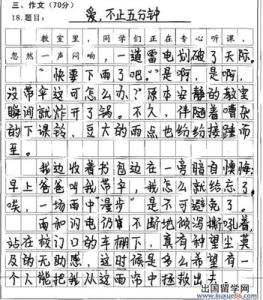 三、作文（70分）
18.题目：爱,不止五分钟
教室里，同学们正在专心听课，
忽然一声闷响，一道雷电划破了天际。
“快要下雨了吧”“是啊，是啊，
没带伞这可怎么办？”原本安静的教室
瞬间就炸开了锅。不久，伴随着嘈杂
的下课铃，豆大的雨点也约约接踵而
至。
我边收着书包边在一旁暗自懊悔，
早上爸爸叫我带伞，我怎么就给忘了，
唉，一场雨中漫步”是不可避免了。
雨和闪电仍旧不断地被泻撕吼着
站在校门口的车棚下，真有种望尘莫
及的无助感，这时候是多么希望有一
个人能把我从这雨帘中拯救出去，
出国留学网
www.liuxue86.com